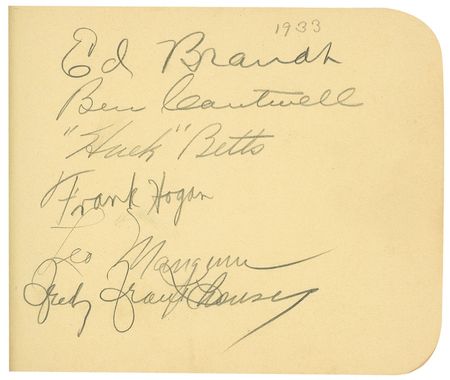 1933
Ed Brandt
Ben Cantwell
"Huck" Betts
Frank Hogan
Leo Mangum
Fred Frankhouse